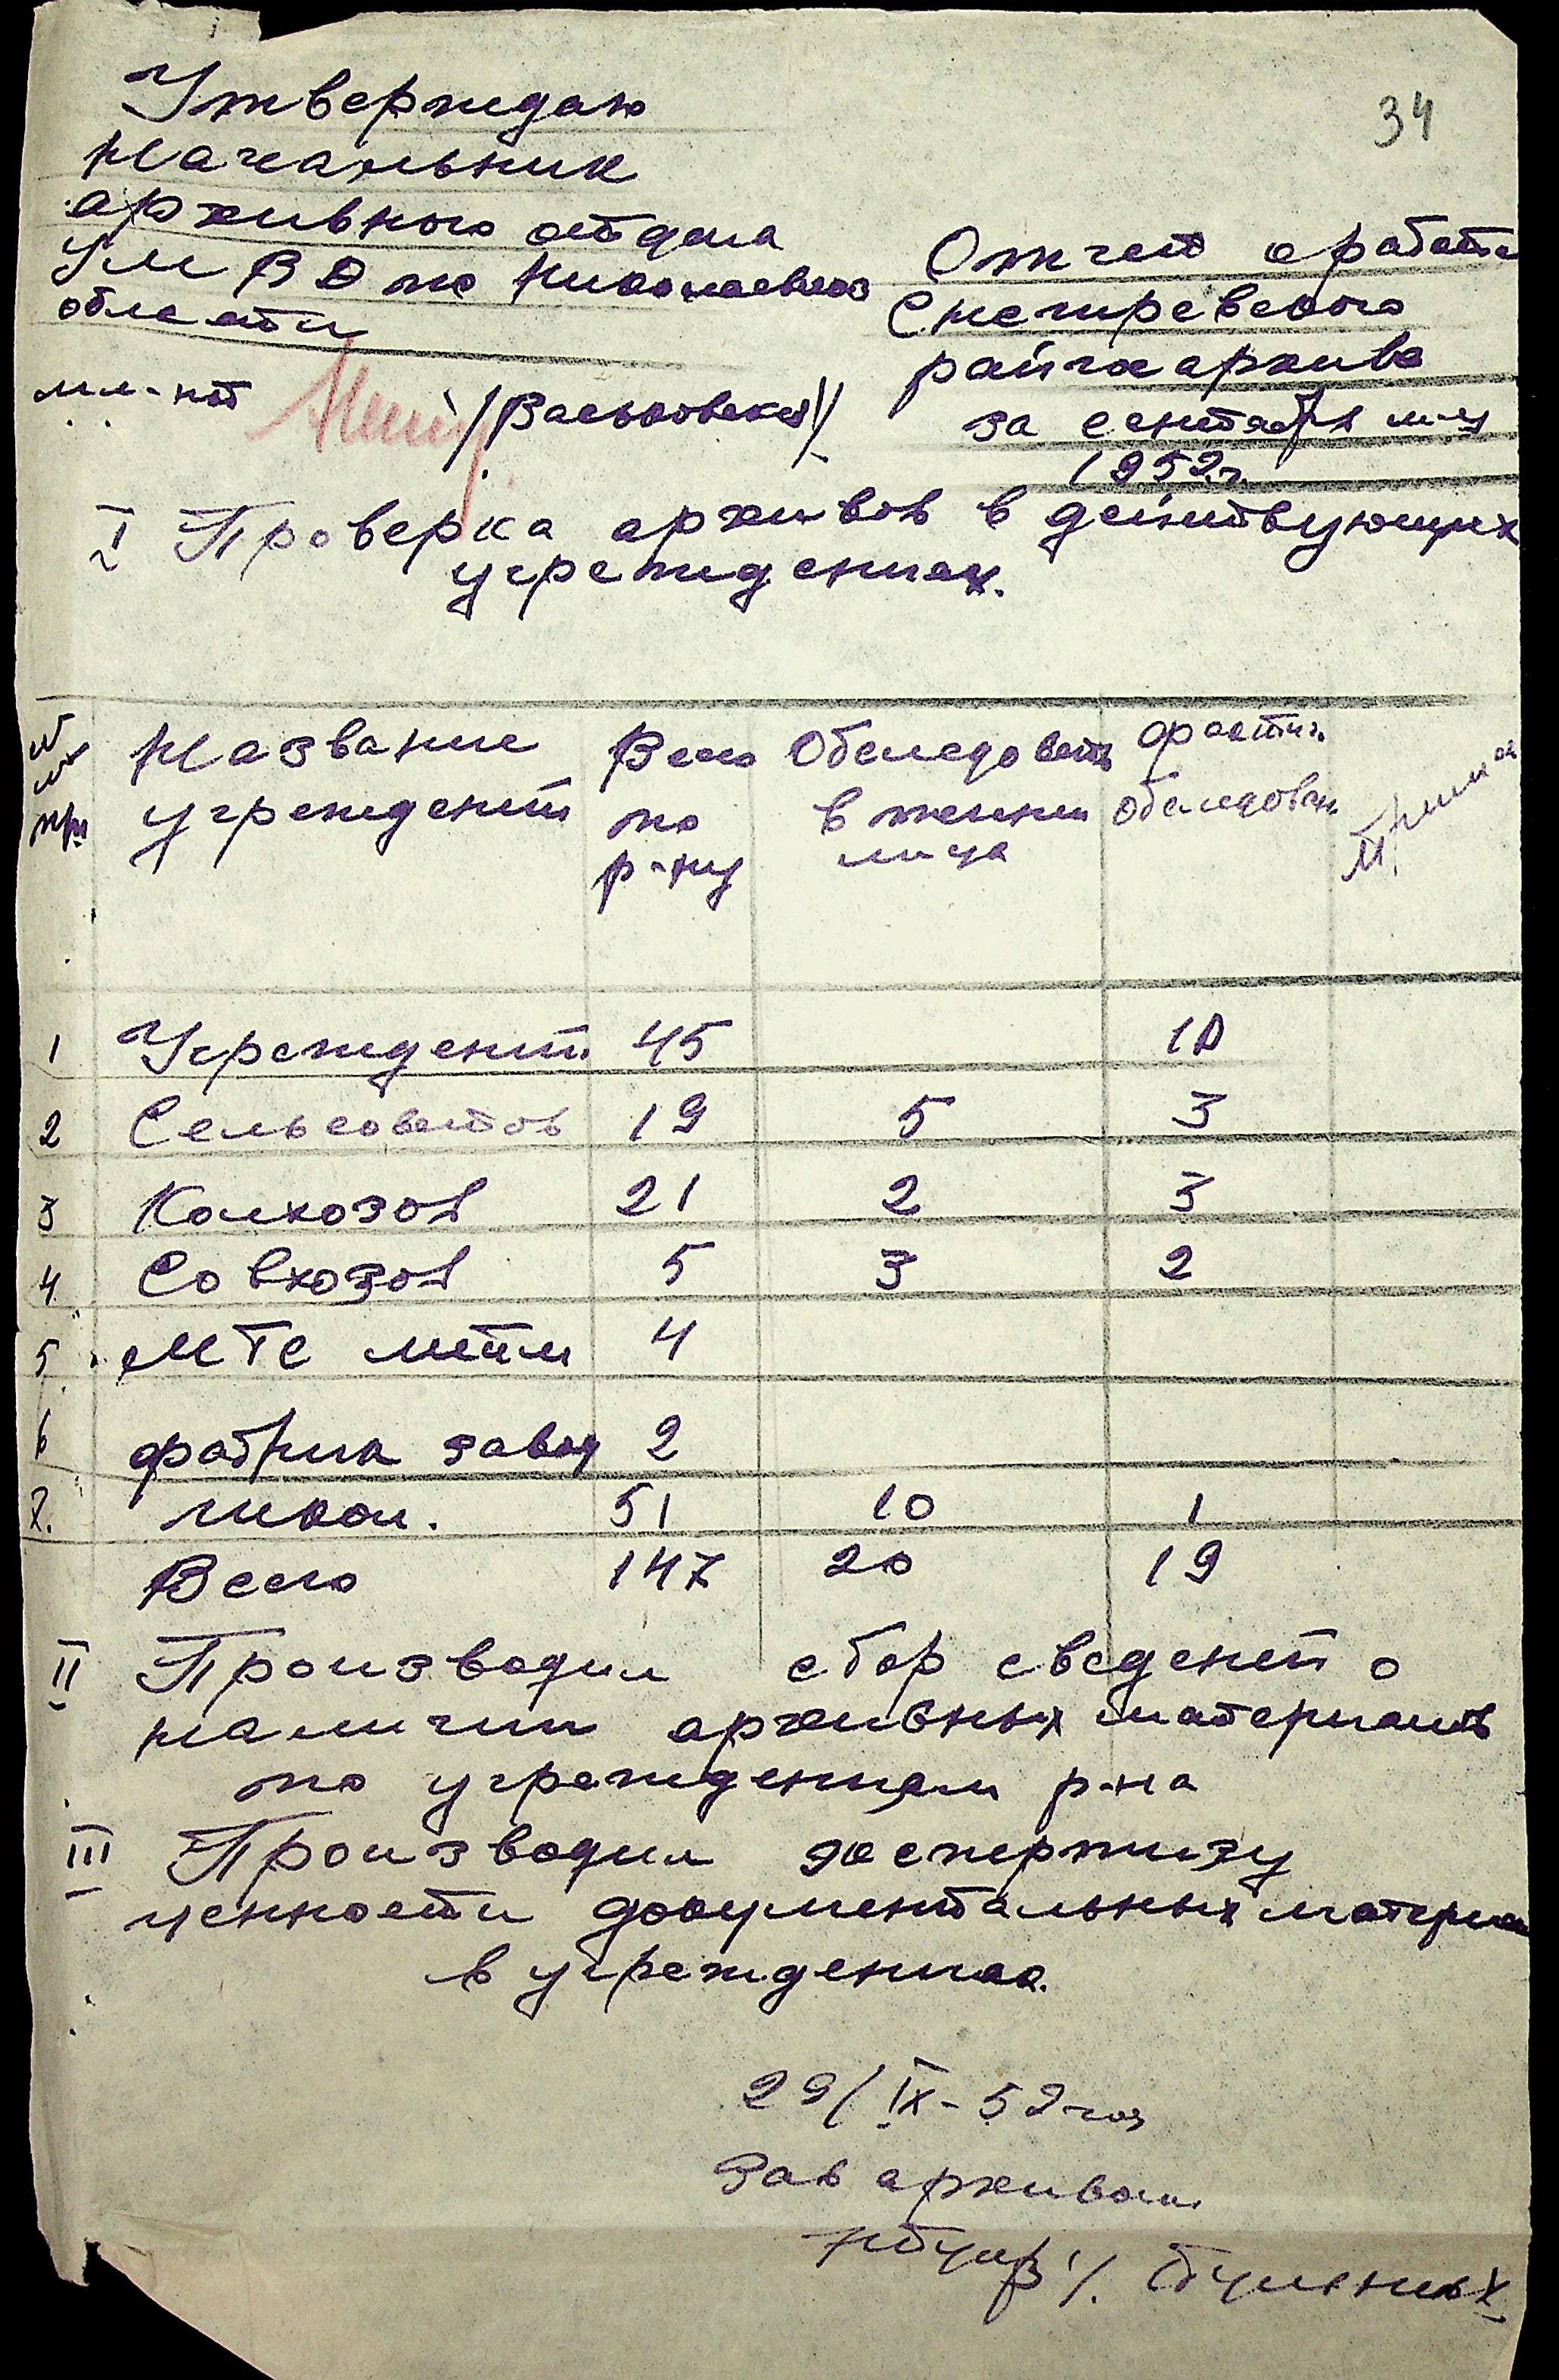 34
Утверждаю
Начальник
архивного отдела
УМВД по Николаевской
области
мл-нт /Васьковский/
Отчет о работе
Снегиревского
райгосархива
за сентябрь м-ц
1952 г.
I Проверка архивов в действующих
учреждениях.
Название Всего Обследовать фактич.
учреждений по в течении обследован
р-ну м-ца
1 Учреждений 45 10
2 Сельсоветов 19 5 3
3 Колхозов 21 2 3
4 Совхозов 5 3 2
5 МТС 4
6 фабрик завод 2
7. школ. 51 10 1
Всего 147 20 19
II Производил сбор сведений о
наличии архивных материалов
по учреждениям р-на
III Производил экспертизу
ценности документальных материа
в учреждениях.
29/IX-52 год
Зав архивом